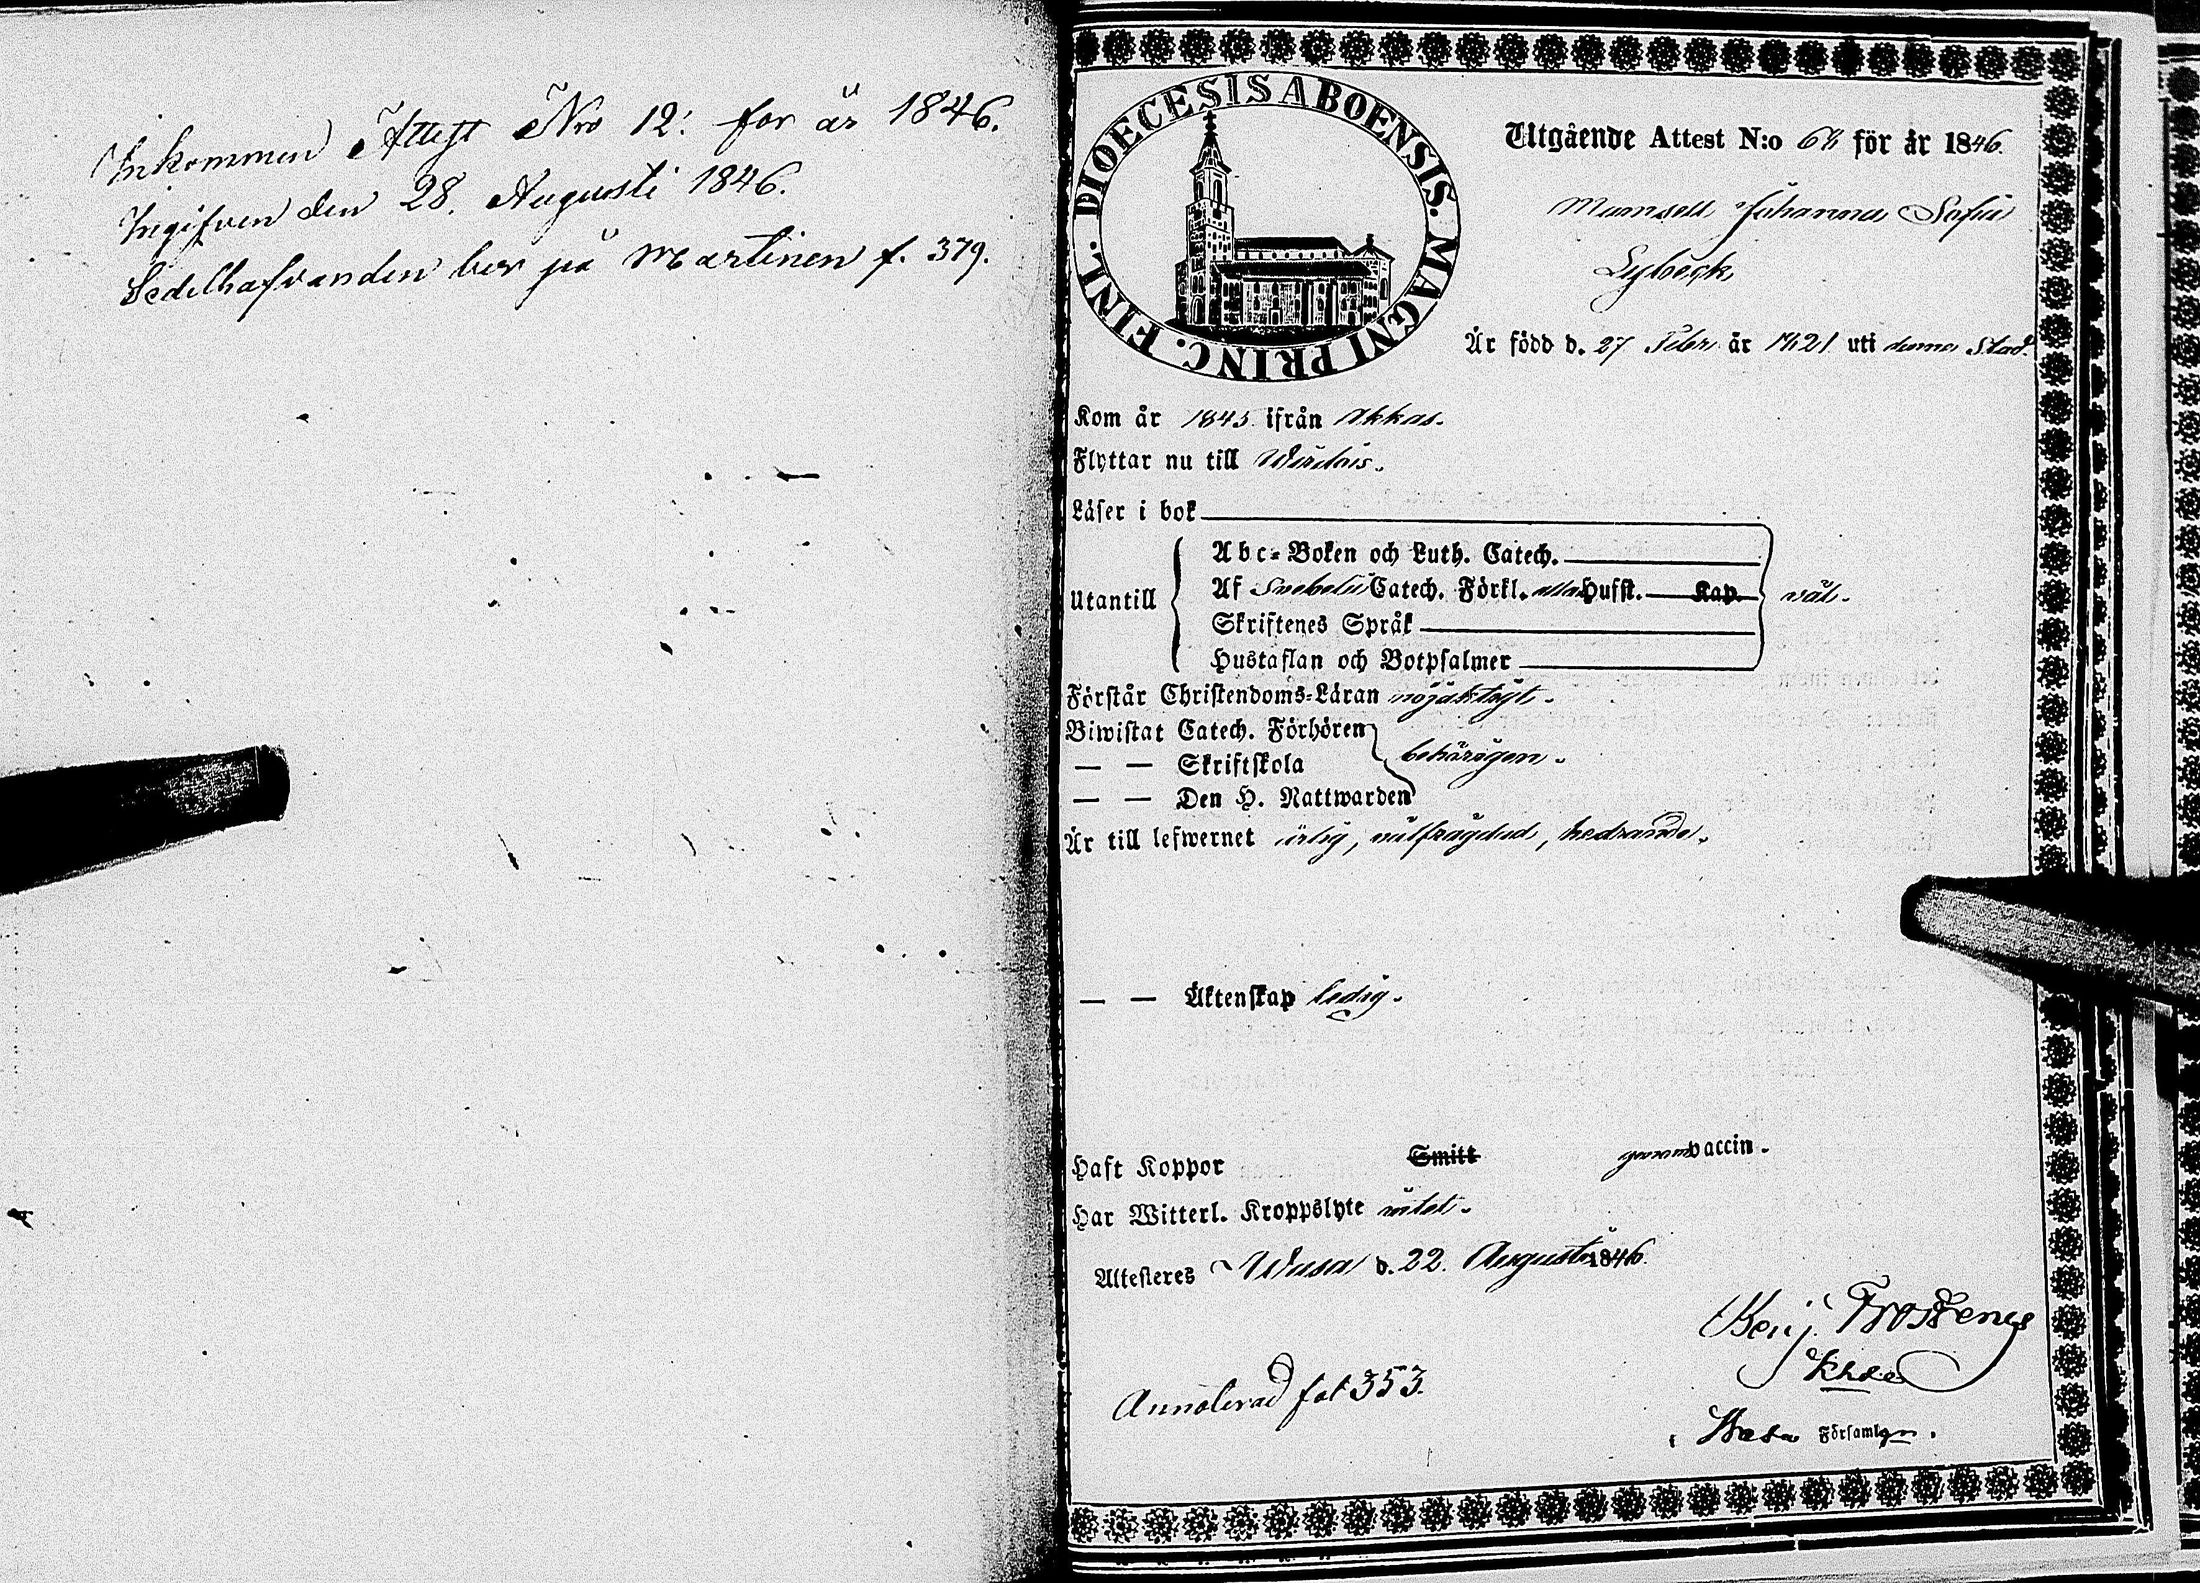 Inkommen Attest Nro 12. for år 1846.
Ingifven den 28. Augusti 1846.
Sedelhafvanden bor på Martinen f. 379.
DIOECESIS ABOENSIS. MAGNI PRINC. FINL.
Utgående Attest N:o 68 för år 1846.
Mamsell Johanna Sofia
Lybeck,
Är född d. 27 Febr. år 1821 uti denna Stad.
Kom år 1845 ifrån Akkas.
Flyttar nu till Wirdois.
Läser i bok
Abc-Boken och Luth. Catech.
Utantill Af Svebelii Catech. Förkl. alla Hufst. Kap. väl.
Skriftenes Språk
Hustaflan och Botpsalmer
Förstår Christendoms-Läran nöjaktigt.
Biwistat Catech. Förhören
— — Skriftskola behörigen.
— — Den H. Nattwarden
Är till lefwernet ärlig, välfrägdad, hedrande.
— — Äktenskap ledig.
Haft Koppor Smitt genom vaccin.
Har Witterl. Kroppslyte intet.
Attesteres Wasa d. 22. Augusti 1846.
Benj. Frosterus
Khde
Annoterad fol 353.
i Wasa Församlgn.